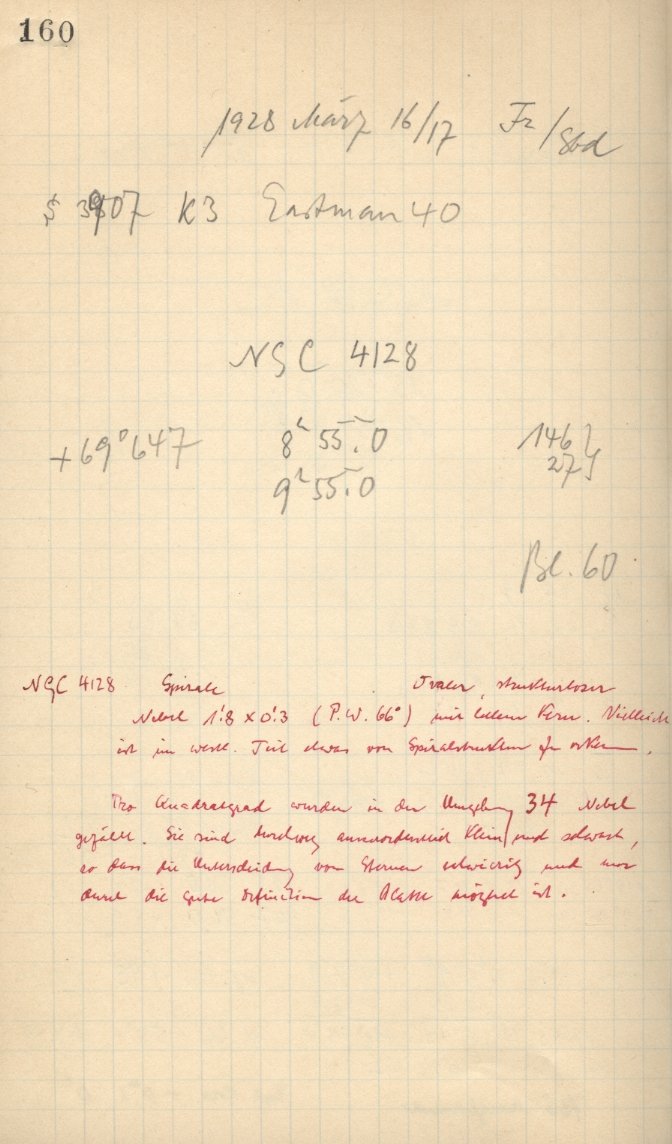 160
1928 März 16/17 Fr/
3907 K3 Eastman 40
NGC 4128
+69° 647 8h 55m.0 146 }
9h 55m.0 27 }
Bl. 60
NGC 4128 Spirale Ovaler, strukturloser
Nebel 1'.8 x 0'.3 (P.W. 66°) mit hellem Kern. Vielleicht
ist im westl. Teil etwas von Spiralstruktur zu erkennen.
Pro Quadratgrad wurden in der Umgebung 34 Nebel
gezählt. Sie sind durchweg ausserordentlich klein und schwach,
so dass die Unterscheidung von Sternen schwierig und nur
durch die gute Definition der Platte möglich ist.